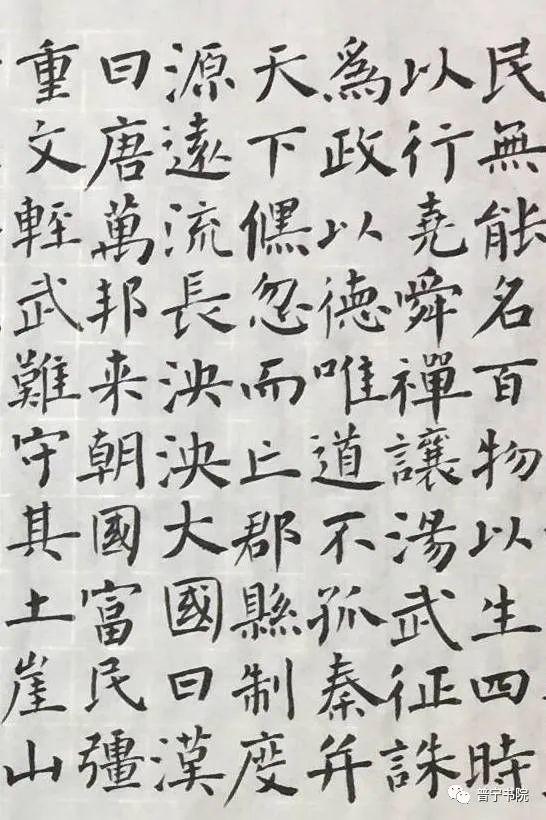 民無能名百物以生四時
以行堯舜禪讓湯武征誅
爲政以德唯道不孤秦并
天下忽而亡郡縣制度
源遠流長泱泱大國曰漢
曰唐萬邦来朝國富民彊
重文輕武難守其土崖山
普宁书院